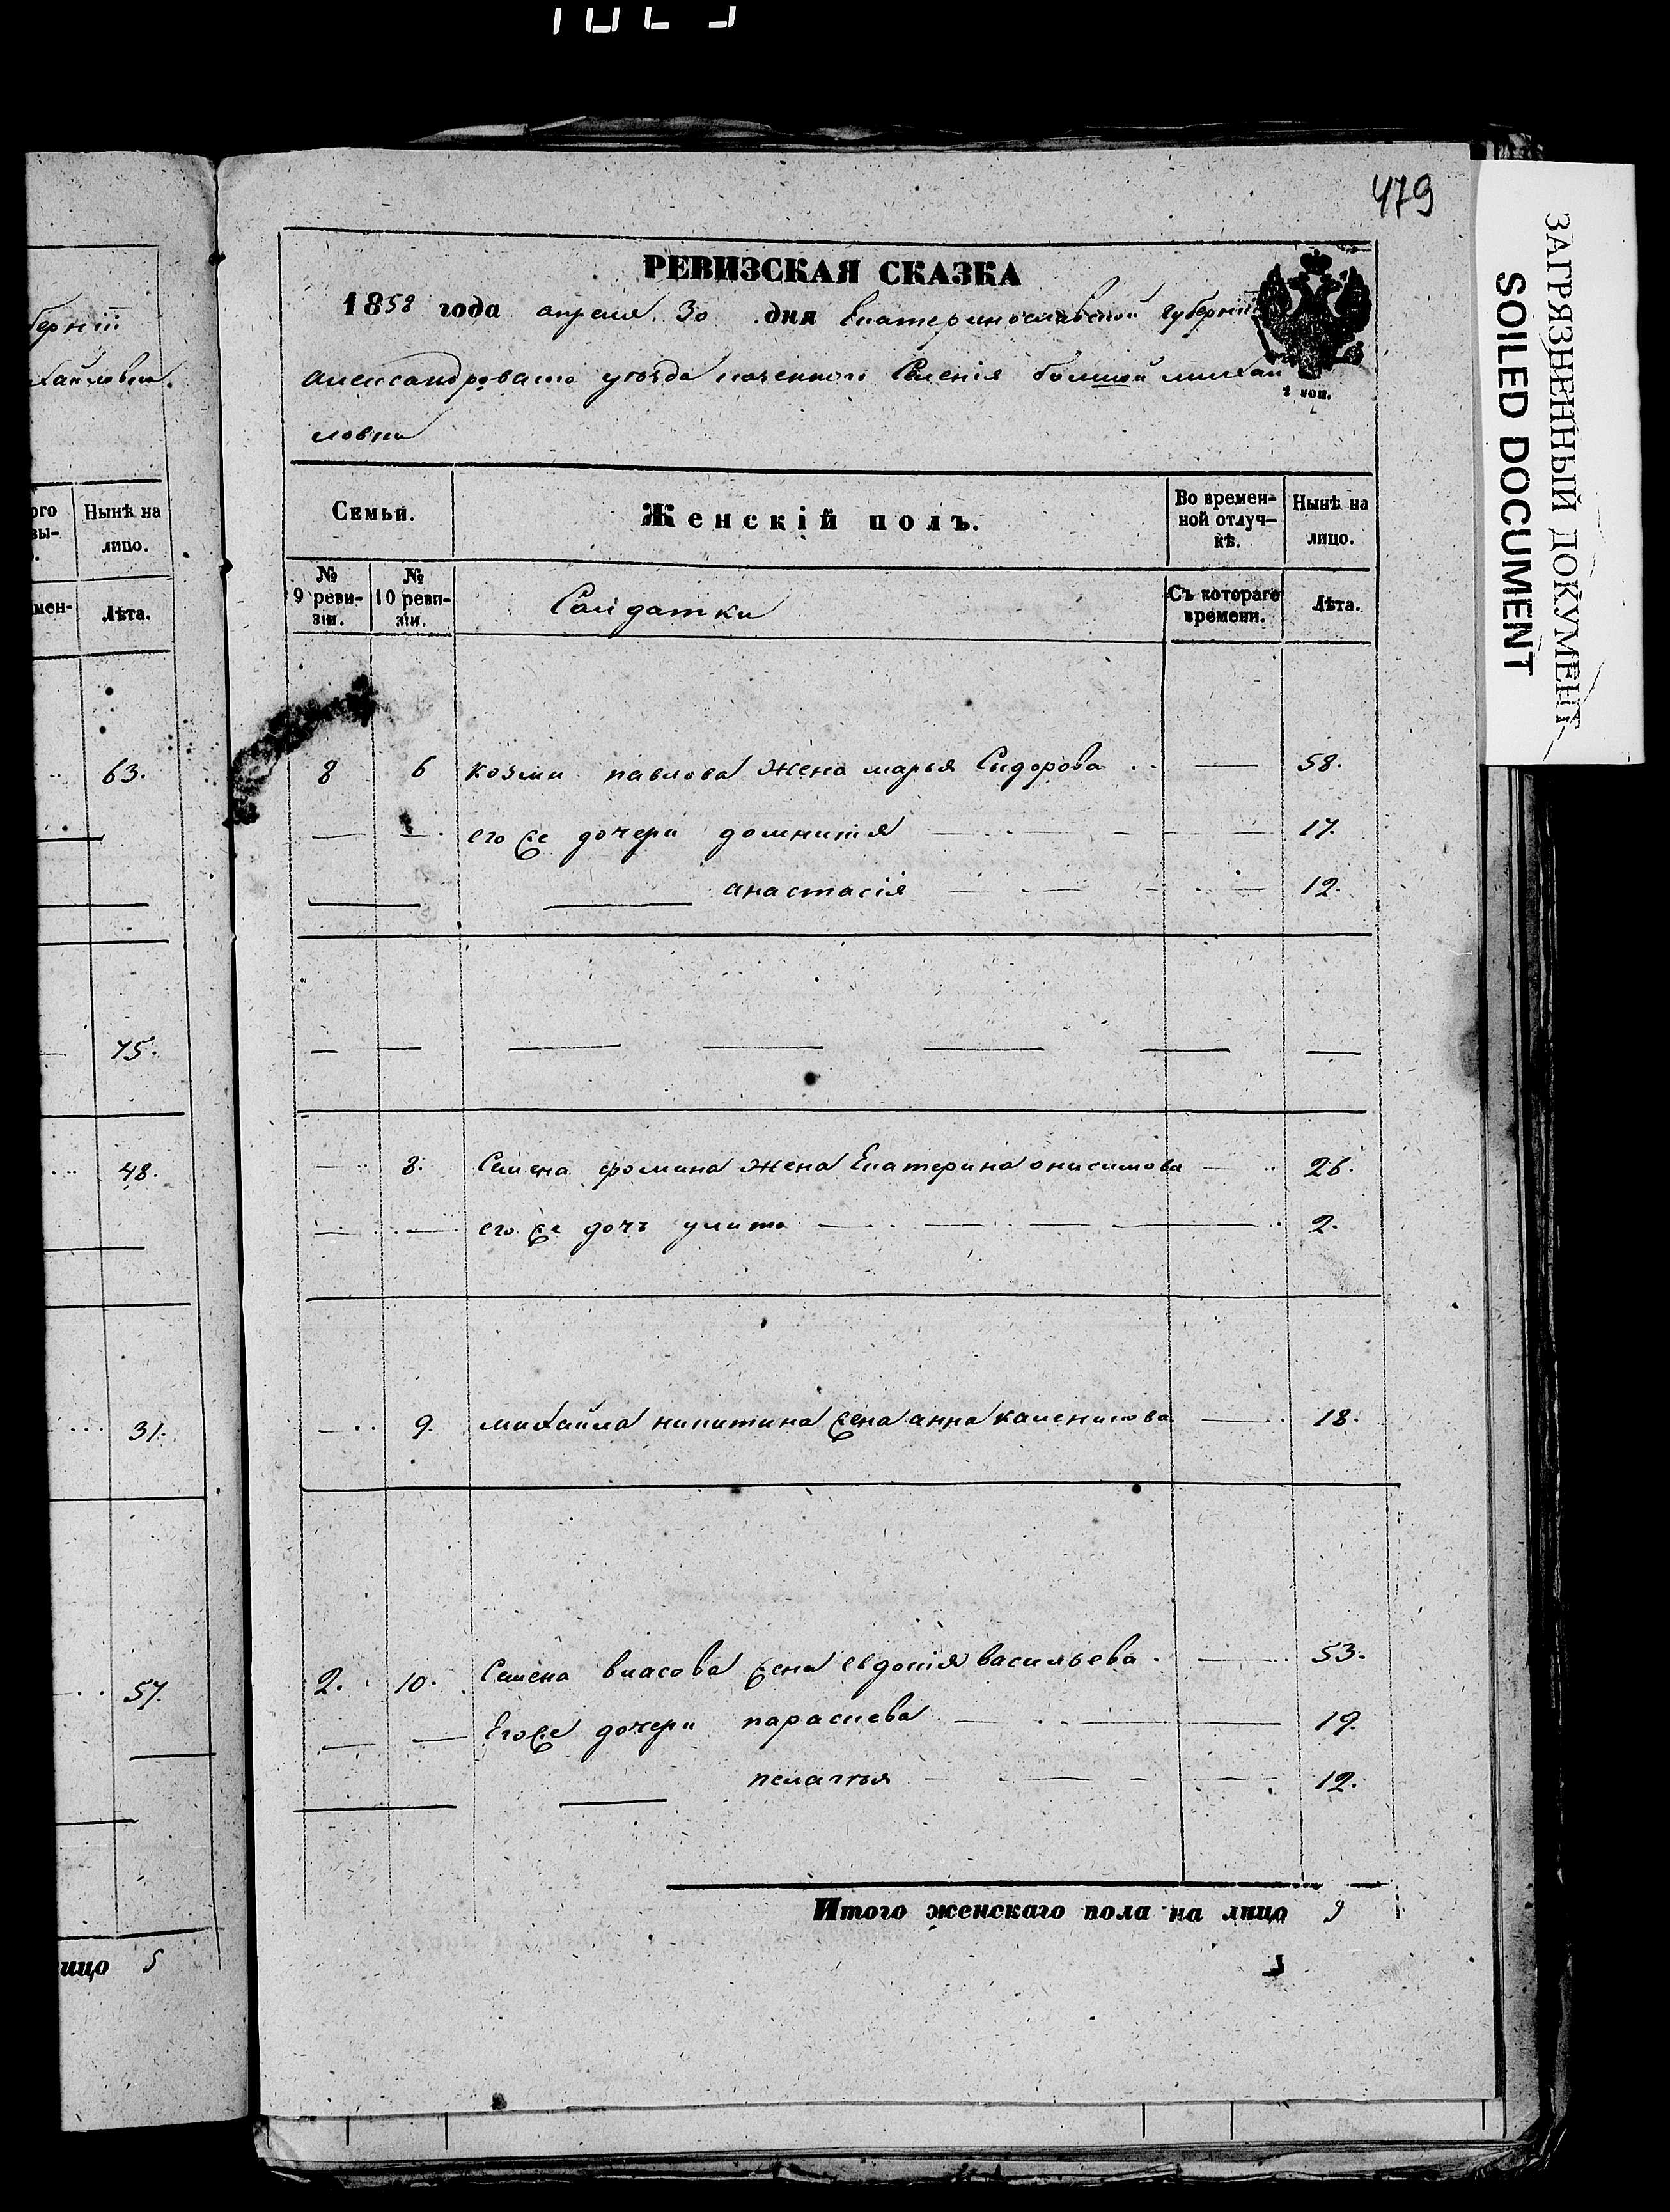 479
ЗАГРЯЗНЕННЫЙ ДОКУМЕНТ
SOILED DOCUMENT
РЕВИЗСКАЯ СКАЗКА
1858 года апреля 30 дня Екатеринославской губернии
александровскаго уѣзда казеннаго Селенія большой михай
ловки
2 коп.
Семьи. Женскій полъ. Во времен- Нынѣ на
ной отлуч- лицо.
кѣ.
№ № Съ котораго Лѣта.
9 реви- 10 реви- Салдатки времени.
зіи. зіи.
8 6 козми павлова жена марья Сидорова 58.
его же дочери домникія 17.
анастасія 12.
8. Семена фомина жена Екатерина онисимова 26.
его же дочь улита 2.
9. михайла никитина жена анна каленикова 18.
2. 10. Семена власова жена евдокія васильева 53.
Его же дочери параскева 19.
пелагья 12.
Итого женскаго пола на лицо 9
берніи
хайловки.
ого Нынѣ на
вы- лицо.
мен- Лѣта.
63.
75.
48.
31.
57.
ицо 5